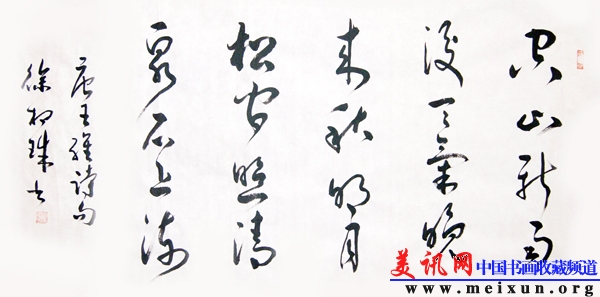 空山新雨
後天氣晚
来秋明月
松间照清
泉石上流
唐王維詩句
徐 珠书
美讯网 中国书画收藏频道
www.meixun.org